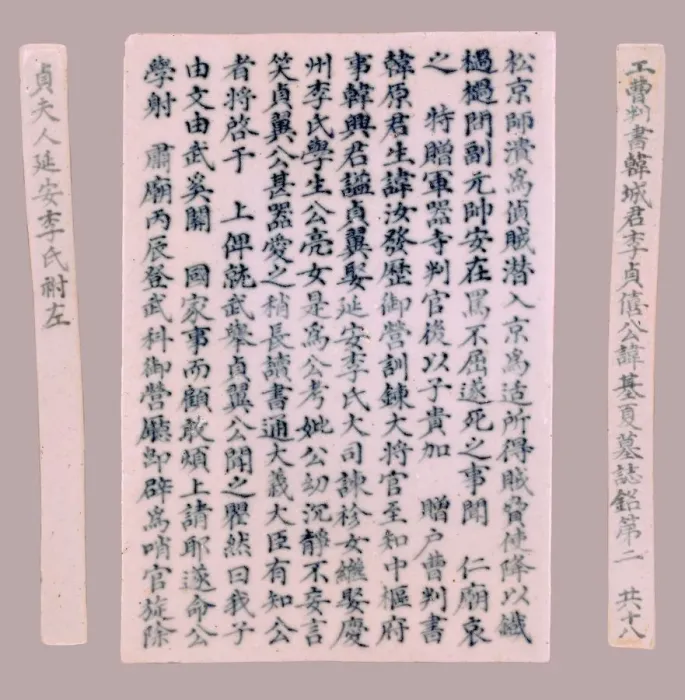 工曹判書韓城君李貞僖公諱基夏墓誌銘第二 共十八
松京師潰爲偵賊潜入京爲适所得賊使降以鐵
檛檛問副元帥安在罵不屈遂死之事聞 仁廟哀
之 特贈軍器寺判官後以子貴加 贈户曹判書
韓原君生諱汝發歷御營訓鍊大將官至知中樞府
事韓興君謚貞翼娶延安李氏大司諫袗女繼娶慶
州李氏學生公亮女是爲公考妣公幼沉靜不妄言
笑貞翼公甚器愛之稍長讀書通大義大臣有知公
者將啓于 上俾就武擧貞翼公聞之瞿然曰我子
由文由武奚關 國家事而顧敢煩上請耶遂命公
學射 肅廟丙辰登武科御營廳卽辟爲哨官旋除
貞夫人延安李氏祔左